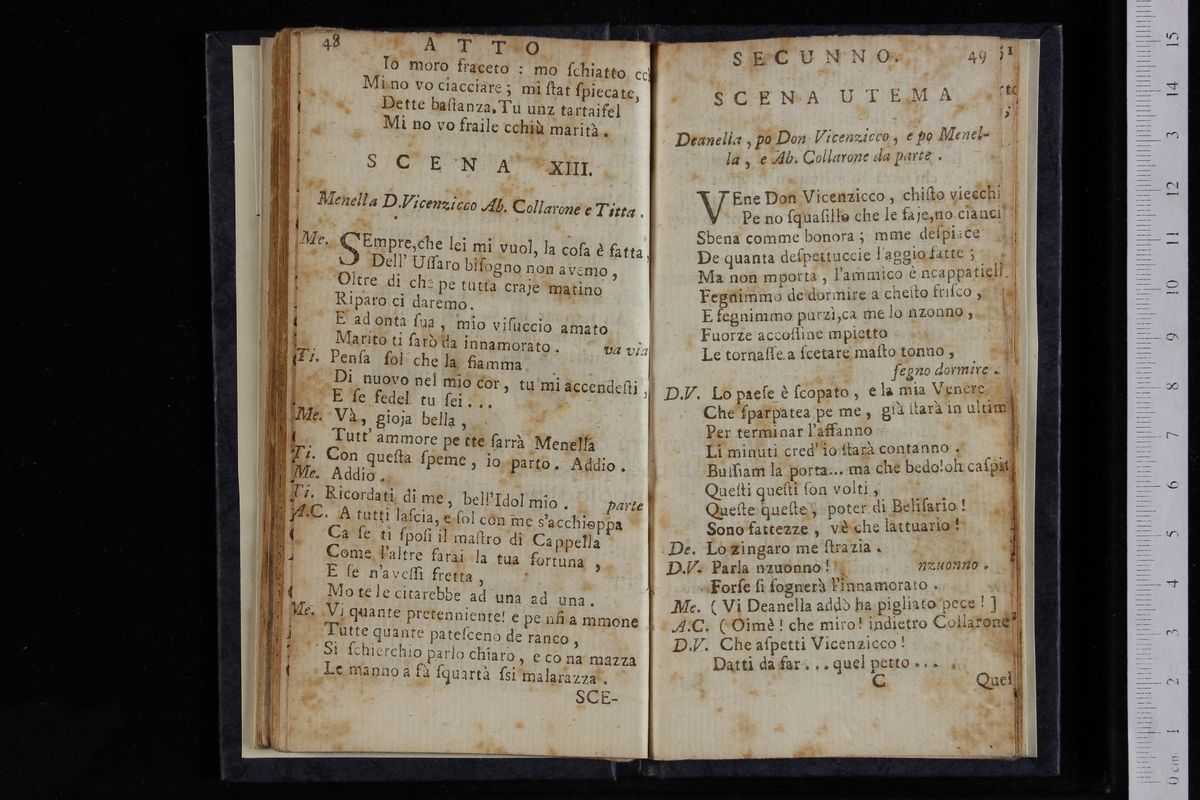 48
ATTO
Io moro fraceto : mo ſchiatto
Mi no vo ciacciare ; mi ſtat ſpiecate,
Dette baſtanza. Tu unz tartaifel
Mi no vo fraile cchiù marità .
SCENA XIII.
Menella D.Vicenzicco Ab. Collarone e Titta .
Me. SEmpre,che lei mi vuol, la coſa è fatta,
Dell' Uſſaro biſogno non avemo ,
Oltre di che pe tutta craje matino
Riparo ci daremo.
E ad onta ſua , mio viſuccio amato
Marito ti ſarò da innamorato . va via
Ti. Penſa ſol che la fiamma
Di nuovo nel mio cor , tu mi accendeſti ,
E ſe fedel tu ſei ...
Me. Và, gioja bella ,
Tutt' ammore pe tte ſarrà Menella
Ti. Con queſta ſpeme, io parto. Addio .
Me. Addio .
Ti. Ricordati di me , bell'Idol mio . parte
A.C. A tutti laſcia, e ſol con me s'acchioppa
Ca ſe ti ſpoſi il maſtro di Cappella
Come l'altre farai la tua fortuna ,
E ſe n'aveſſi fretta ,
Mo te le citarebbe ad una ad una .
Me. Vj quante pretenniente! e pe nſi a mmone
Tutte quante pateſceno de ranco ,
Si ſchierchio parlo chiaro , e co na mazza
Le manno a fà ſquartà ſsi malarazza .
SCE-
SECUNNO. 49 51
SCENA UTEMA
Deanella , po Don Vicenzicco , e po Menel-
la , e Ab. Collarone da parte .
VEne Don Vicenzicco , chiſto viecchi
Pe no ſquaſillo che le faje,no cianci
Sbena comme bonora ; mme deſpiace
De quanta deſpettuccie l'aggio fatte ;
Ma non mporta , l'ammico è ncappatiell
Fegnimmo de dormire a cheſto friſco ,
E ſegnimmo purzì,ca me lo nzonno ,
Fuorze accoſſine mpietto
Le tornaſſe a ſcetare maſto tonno ,
ſegno dormire .
D.V. Lo paeſe è ſcopato , e la mia Venere
Che ſparpatea pe me , già ſtarà in ultim
Per terminar l'affanno
Li minuti cred' io ſtarà contanno .
Buſſiam la porta... ma che bedo!oh caſpit
Queſti queſti ſon volti ,
Queſte queſte , poter di Beliſario !
Sono fattezze , vè che lattuario !
De. Lo zingaro me ſtrazia .
D.V. Parla nzuonno ! nzuonno .
Forſe ſi ſognerà l'innamorato .
Me. ( Vi Deanella addò ha pigliato pece ! ]
A.C. ( Oimè ! che miro ! indietro Collarone
D.V. Che aſpetti Vicenzicco !
Datti da far ... quel petto ...
C Quel